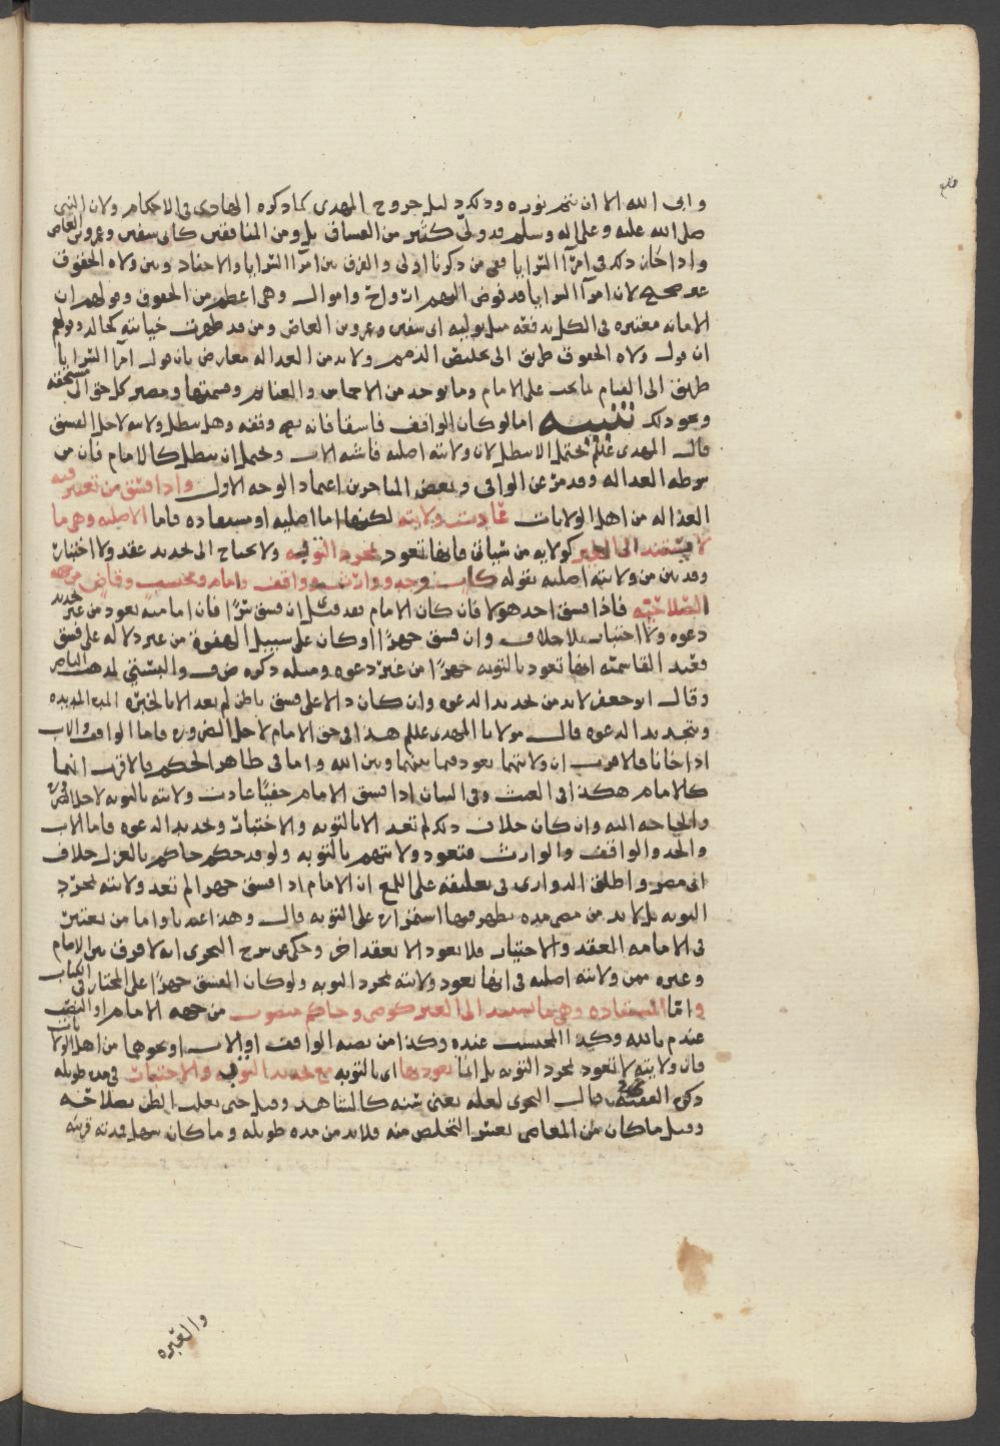 وابى الله الا ان يتم نوره وذلك دليل خروج المهدي كما ذكره الهادي في الاحكام ولان النبي
صلى الله عليه وعلى اله وسلم قد ولى كثير من الفساق بل ومن المنافقين كابي سفين وعمرو بن العاص
واذا ذلك في امرآ السرايا ففي من ذكرنا اولى والفرق بين امرآ السرايا والاجناد وبين ولاه الحقوق
غير صحيح لان امرآ السرايا قد فوض اليهم ارواح واموال وهي اعظم من الحقوق وقولهم ان
الامانه معتبره في الكل يدفعه مثل توليه ابي سفين وعمرو بن العاص ومن قد ظهرت خيانته كخالد وقولهم
ان ولاه الحقوق طريق الى تخليص الذمم ولا بد من العداله معارض بان امرآ السرايا
طريق الى القيام بما يجب على الامام وما يوخذ من الاخماس والغنايم وقسمتها ومصير كل حق الى مستحقه
ونحو ذلك تنبيه اما لو كان الواقف فاسقا فانه يصح وقفه وهل يبطل ولايته لاجل الفسق
قال المهدي عللم يحتمل الا يبطل لان ولايته اصليه فاشبه الاب ويحتمل ان يبطل كالامام فان من
شرطه العداله وقد مر عن الوافي وبعض المتاخرين اعتماد الوجه الاول واذا فسق من تعتبر فيه
العداله من اهل الولايات عادت ولايته لكنها اما اصليه او مستفاده فاما الاصليه وهي ما
لا يستند الى الغير كولايه من سياتي فانها تعود بمجرد التوبه ولا يحتاج الى تجديد عقد ولا اختبار
وقد بين من ولايته اصليه بقوله كاب وجد ووارث وواقف وامام ومحتسب وقاض من جهه
الصلاحيه فاذا فسق احد هولا فان كان الامام فقد قيل ان فسق سرًا فان امامته تعود من غير تجديد
دعوه ولا اختبار بلا خلاف وان فسق جهرًا او كان على سبيل الهفوة من غير دلاله على فسق
فعند القاسميه انها تعود بالتوبه جهرًا من غير دعوه ومثله ذكره ض ف والبستي لمذهب الناصر
وقال ابو جعفر لا بد من تجديد الدعوه وان كان دالا على فسق باطن لم يعد الا بالخبره المده المديده
وتجديد الدعوه قال مولانا المهدي عللم هذا في حق الامام لاجل الضروره فاما الواقف والاب
اذا خانا فالاقرب ان ولايتهما تعود فيما بينهما وبين الله واما في ظاهر الحكم فالاقرب انهما
كالامام هكذا في الغيث وفي البيان اذا فسق الامام خفيًا عادت ولايته بالتوبه لاجل الضروره
والحاجه اليه وان كان خلاف ذلك لم تعد الا بالتوبه والاختبار وتجديد الدعوه فاما الاب
والجد والواقف والوارث فتعود ولايتهم بالتوبه ولو قد حكم حاكم بالعزل خلاف
ابي مضر واطلق الدواري في تعليقه على اللمع ان الامام اذا فسق جهرا لم تعد ولايته بمجرد
التوبه بل لا بد من مضي مده يظهر فيها استمراره على التوبه قال وهذا عندنا واما من يعتبر
في الامامه العقد والاختيار فلا تعود الا بعقد اخر وحكى عن شرح البحرى انه لا فرق بين الامام
وغيره ممن ولايته اصليه في انها تعود ولايته بمجرد التوبه ولو كان الفسق جهرًا على المختار في الكتاب
واما المستفاده وهي ما يستند الى الغير كوصي وحاكم منصوب من جهه الامام او
عند م بالله وكذا المحتسب عنده وكذا من نصبه الواقف او الاب او نحوها من اهل الولايات
فان ولايته لا تعود بمجرد التوبه بل انما تعود بها اي بالتوبه مع تجديد التوليه والاختبار في مده طويله
ذكره الفقيه ح قال البحرى لعله يعني سنه كالشاهد وقيل حتى يغلب الظن بصلاحه
وقيل ما كان من المعاصي يعسر التخلص منه فلا بد من مده طويله وما كان سهل فمدته قريبه
والعبره